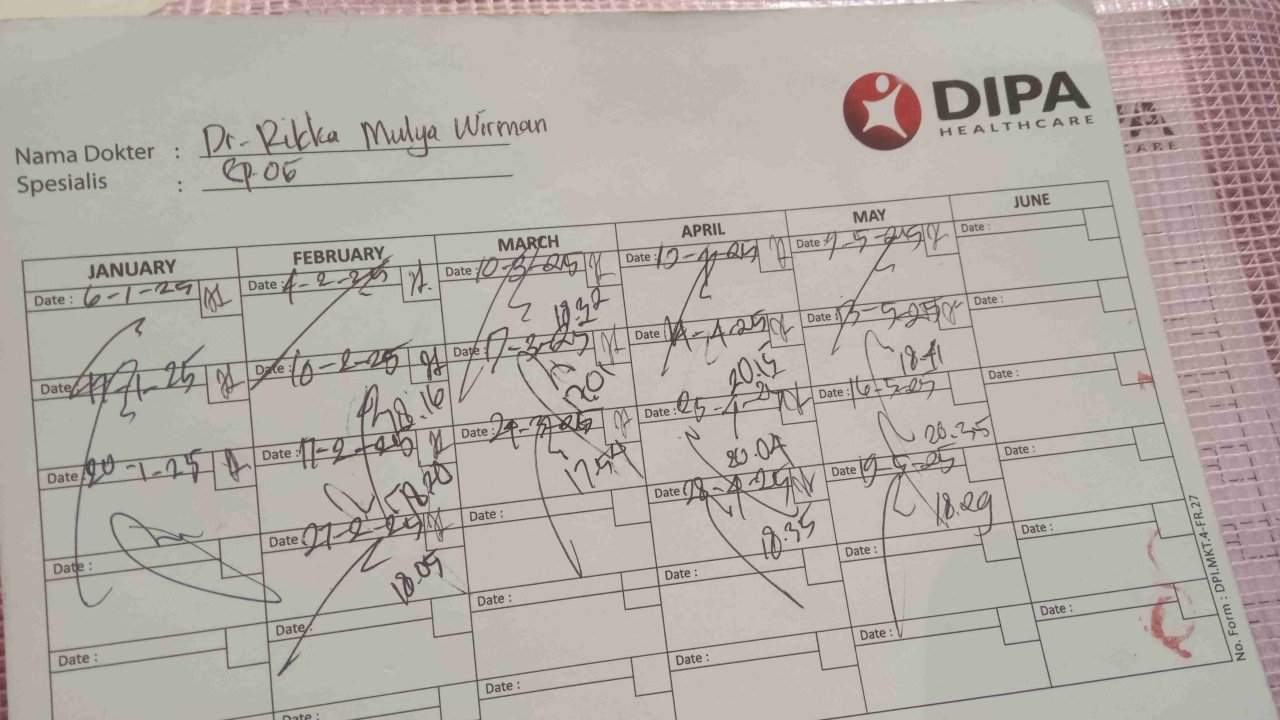 DIPA
HEALTHCARE
Nama Dokter : Dr. Rikka Mulya Wirman
Spesialis :
JANUARY FEBRUARY MARCH APRIL MAY JUNE
Date : 6-1-25 Date : 4-2-25 Date : 10-3-25 Date : Date : Date :
18.32
Date : Date : 10-2-25 Date : 17-3-25 Date : 14-4-25 Date : 13-5-25 Date :
18.16 20.15 18.41
Date : 20-1-25 Date : 17-2-25 Date : Date : 25-4-25 Date : 16-5-25 Date :
18.20 20.04 20.35
Date : Date : 27-2-25 Date : Date : 28-4-25 Date : 19-5-25 Date :
18.05 18.35 18.29
Date : Date : Date : Date : Date : Date :
Date : Date : Date : Date : Date :
No. Form : DPI.MKT.4-FR.27